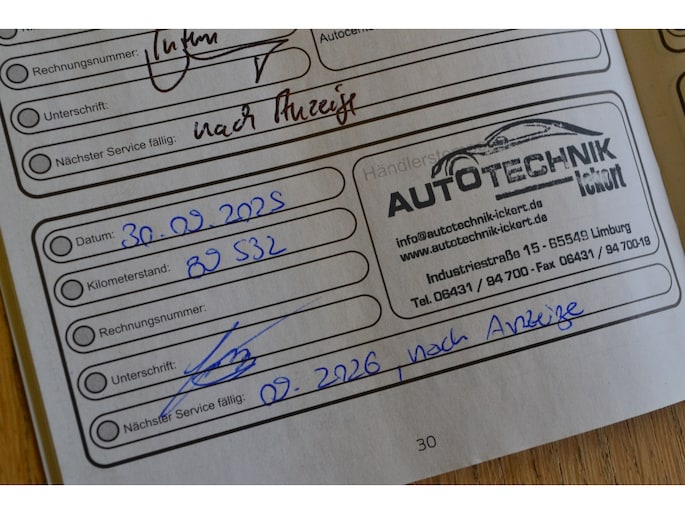 Rechnungsnummer:
Autocente
Unterschrift:
Nächster Service fällig: nach Anzeige
Händlerstem
AUTOTECHNIK
Ickert
info@autotechnik-ickert.de
www.autotechnik-ickert.de
Industriestraße 15 - 65549 Limburg
Tel. 06431 / 94 700 - Fax 06431 / 94 700-19
Datum: 30.09.2025
Kilometerstand: 89 532
Rechnungsnummer:
Unterschrift:
Nächster Service fällig: 09.2026, nach Anzeige
30